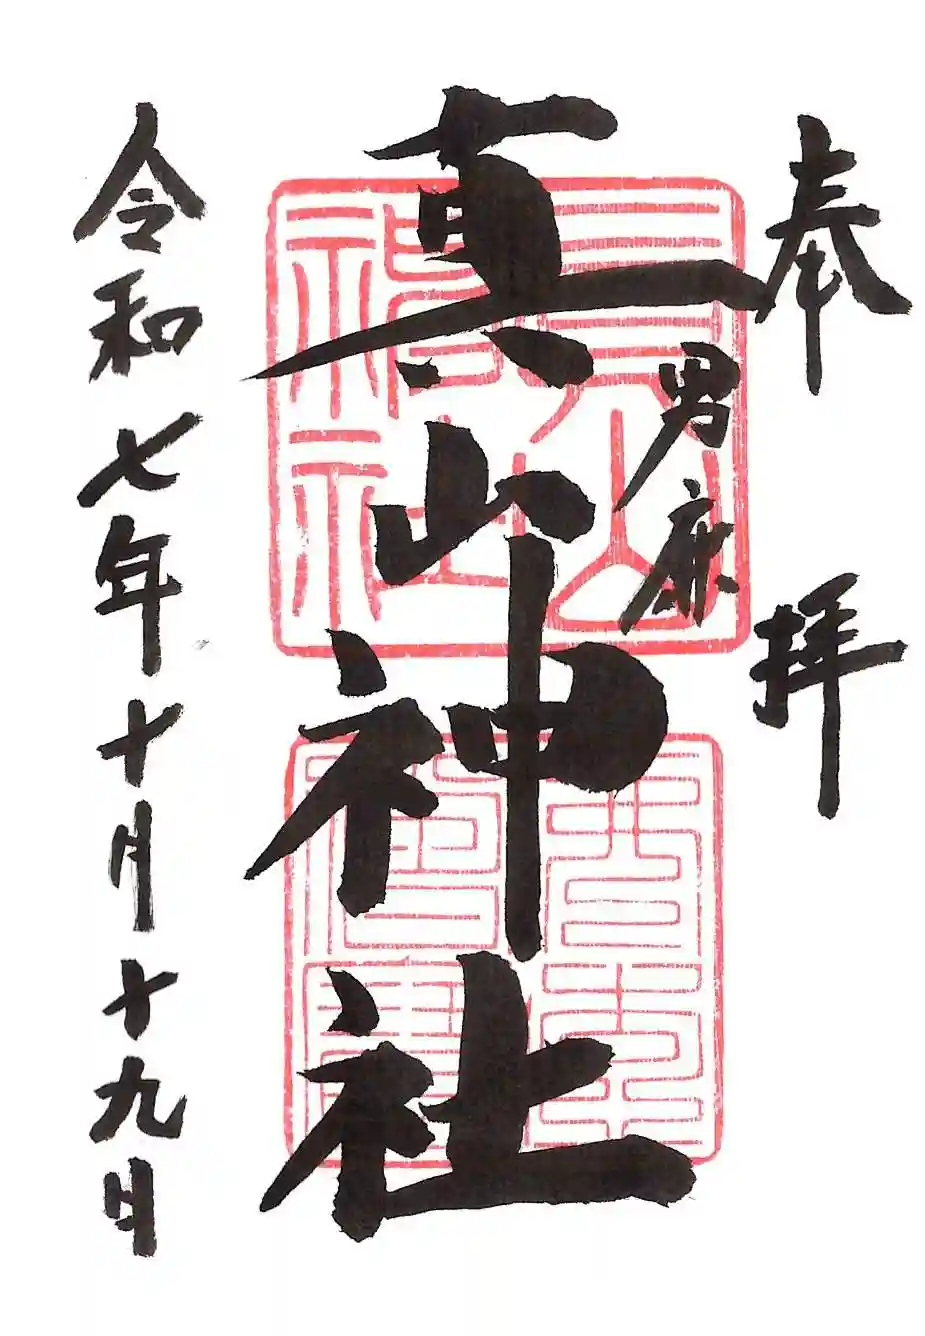 奉拝
男鹿
真山神社
真山神社
令和七年十月十九日